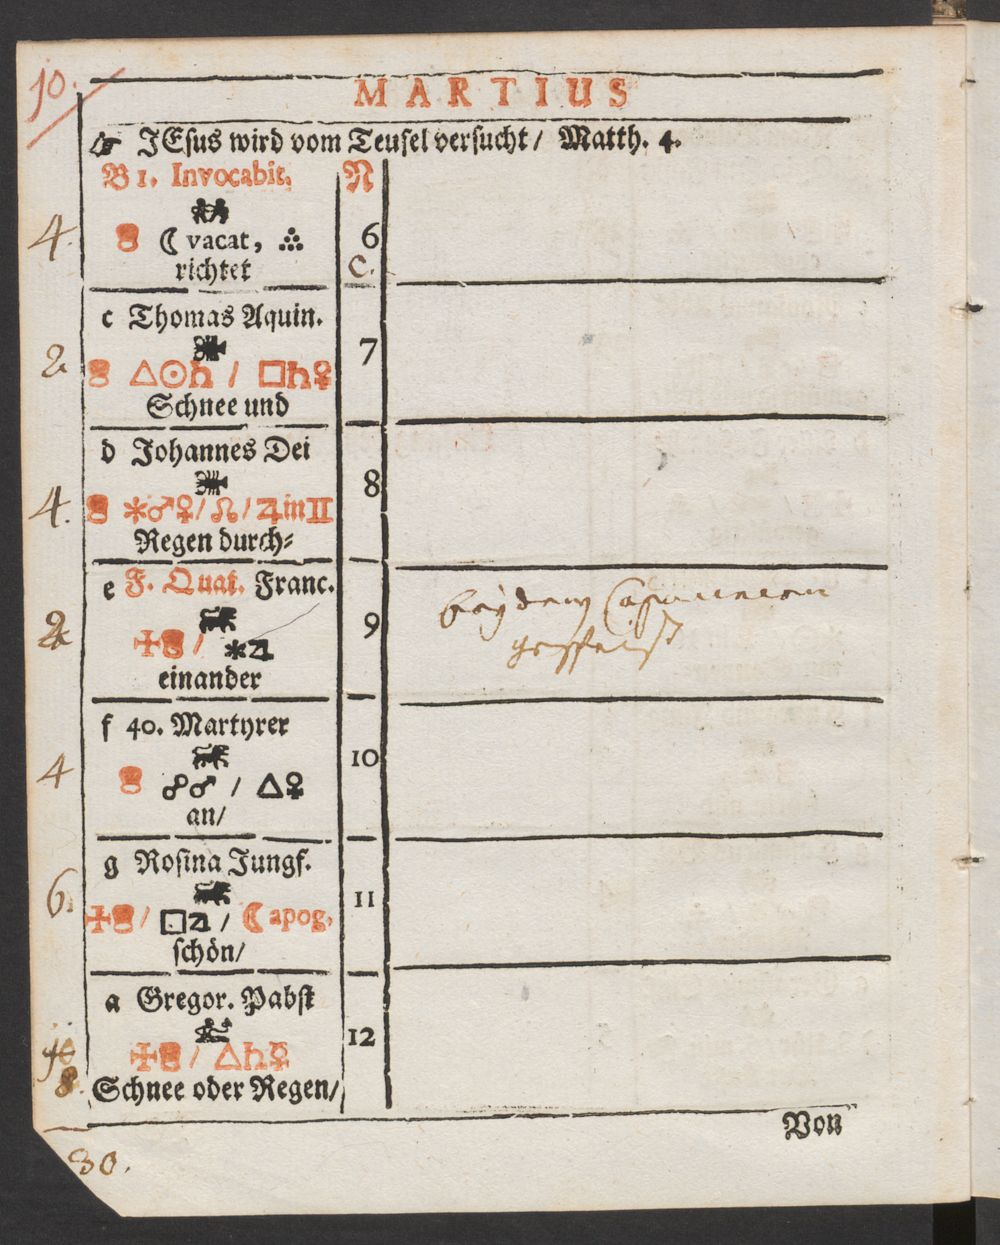 10.
MARTIUS
☞ JEsus wird vom Teufel versucht / Matth. 4.
B 1. Invocabit. N
4. ☾ vacat, ∴ 6
richtet C.
c Thomas Aquin.
7
2. △☉♄ / □♄♀
Schnee und
d Johannes Dei
8
4. ✱♂♀/☊/♃in♊
Regen durch⸗
e F. Quat. Franc.
9
2. ✠ / ✱♃
bey denen Capucineren
einander
f 40. Martyrer
10
4 ☍♂ / △♀
an/
g Rosina Jungf.
11
6. ✠ / □♃ / ☾apog.
schön/
a Gregor. Pabst
12
✠ / △♄☿
8. Schnee oder Regen/
Von
30.